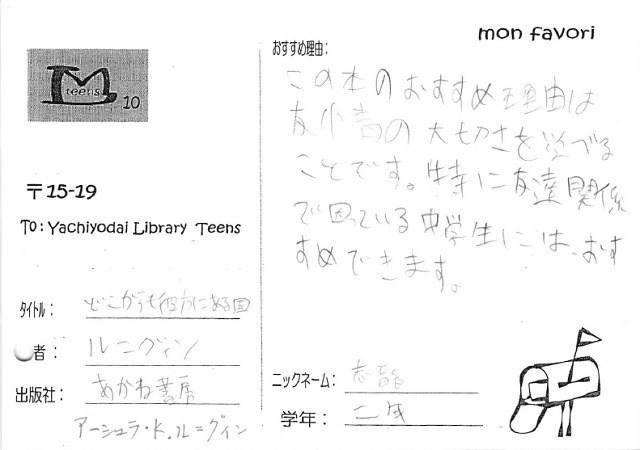 mon favori
teens
10
〒15-19
To: Yachiyodai Library Teens
タイトル: どこからも彼方にある国
者: ル=グィン
出版社: あかね書房
アーシュラ・K.ル=グィン
おすすめ理由:
この本のおすすめ理由は
友情の大切さを学べる
ことです。特に友達関係
で困っている中学生には、おす
すめできます。
ニックネーム:
学年: 二年